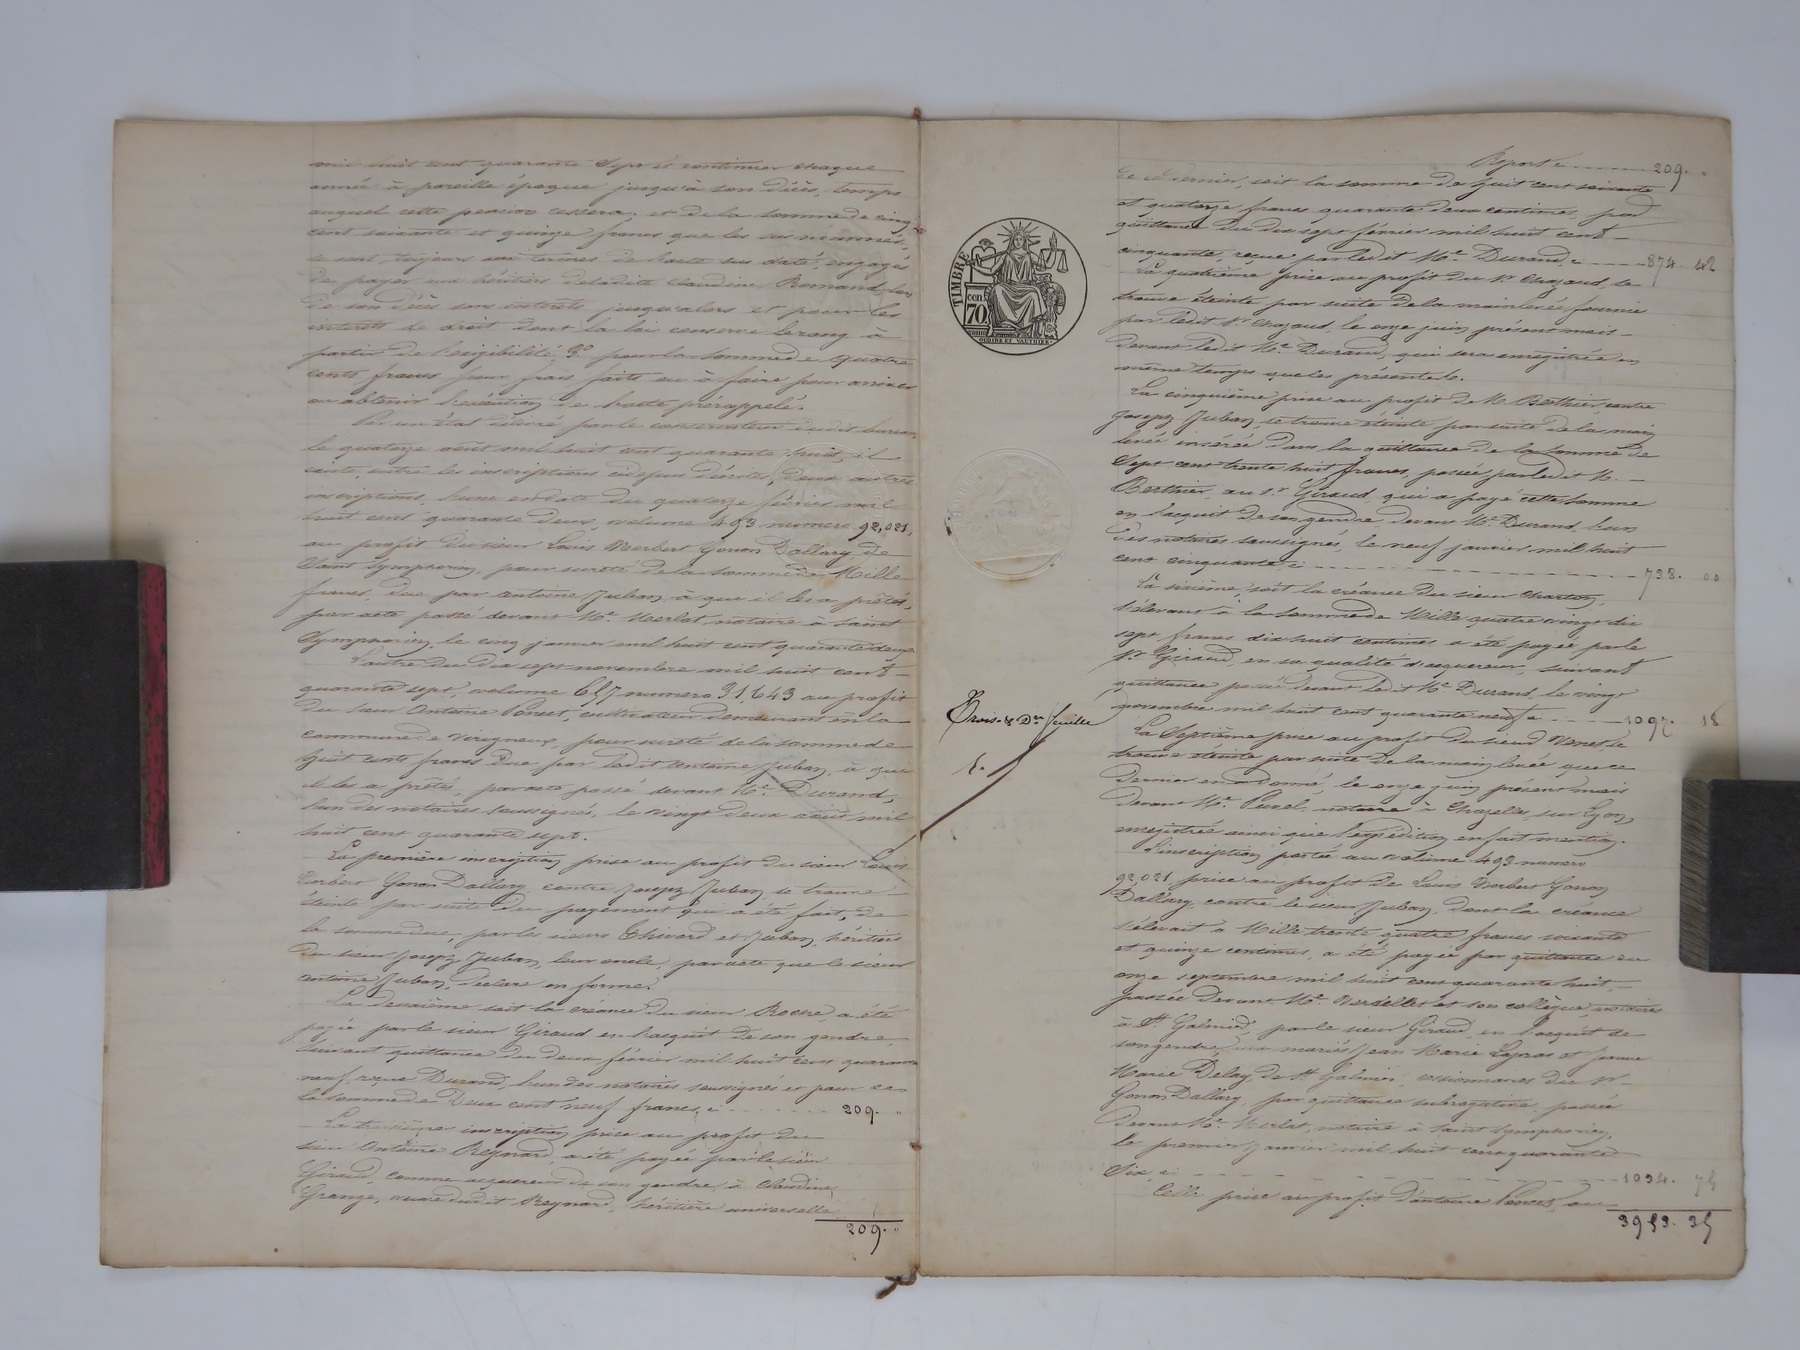 mil huit cent quarante Sept et continuer chaque
année à pareille époque jusqu'à son décès, temps
auquel cette pension cessera; et de la somme de cinq
cent soixante et quinze francs que les sus nommés,
se sont, toujours aux termes de l'acte sus daté, engagés
de payer aux héritiers de ladite Claudine Remand, lors
de son décès sans intérêts jusqu'alors et pour les
intérêts de droit dont la loi conserve le rang à
partir de l'exigibilité, 3° pour la somme de Quatre
cents francs pour frais faits ou à faire pour arriver
ou obtenir l'exécution de l'acte prérappelé.
Par un état délivré par le conservateur dudit bureau,
le quatorze août mil huit cent quarante huit, il
existe, outre les inscriptions ci dessus décrites, deux autres
inscriptions, l'une en date du quatorze février mil
huit cent quarante deux, volume 493 numéro 92,021,
au profit du sieur Louis Norbert Gonon Dallary de
Saint Symphorien, pour sureté de la somme de Mille
francs, due par Antoine Juban à qui il les a prêtés,
par acte passé devant Me Merlat, notaire à Saint
Symphorien, le cinq janvier mil huit cent quarante deux.
L'autre du dix sept novembre mil huit cent
quarante sept, volume 657 numéro 31,643 au profit
du sieur Antoine Poncet, cultivateur demeurant en la
commune de Virigneux, pour sureté de la somme de
huit cents francs due par ledit Antoine Juban, à qui
il les a prêtés, par acte passé devant Me Durand,
l'un des notaires soussignés, le vingt deux août mil
huit cent quarante sept.
La première inscription prise au profit du sieur Louis
Norbert Gonon Dallary contre Joseph Juban, se trouve
éteinte par suite du payement qui a été fait, de
la somme due, par les sieurs Thivard et Juban, héritiers
du sieur Joseph Juban, leur oncle, par acte que le sieur
Antoine Juban, déclare en forme.
La deuxième soit la créance du sieur Roche, a été
payée par le sieur Giraud en l'acquit de son gendre,
suivant quittance du deux février mil huit cent quarante
neuf, reçue Durand, l'un des notaires soussignés et pour
la somme de Deux cent neuf francs, ci 209. "
La troisième inscription prise au profit du
sieur Antoine Reynard, a été payée par le sieur
Giraud, comme acquéreur de son gendre, à Claudine
Grange, veuve dudit Reynard, héritière universelle
209. "
Report ci 209. "
de ce dernier, soit la somme de huit cent soixante
et quatorze francs quarante deux centimes, par
quittance du dix sept février mil huit cent
cinquante, reçue par ledit Me Durand, ci 874. 42
La quatrième prise au profit du sr Chazaud, se
trouve éteinte par suite de la mainlevée fournie
par ledit sr Chazaud, le onze juin présent mois
devant ledit Me Durand, qui sera enregistrée en
même temps que les présentes.
La cinquième prise au profit de M. Berthier, contre
Joseph Juban, se trouve éteinte par suite de la main
levée insérée dans la quittance de la somme de
Sept cent trente huit francs, passée par ledit M.
Berthier, au sr Giraud, qui a payé cette somme
en l'acquit de son gendre, devant Me Durand, l'un
des notaires soussignés, le neuf janvier mil huit
cent cinquante, ci 738. 00
La sixième, soit la créance du sieur Charton,
s'élevant à la somme de Mille quatre vingt dix
sept francs dix huit centimes a été payée par le
sr Giraud, en sa qualité d'acquéreur, suivant
quittance passée devant ledit Me Durand, le vingt
novembre mil huit cent quarante neuf, ci 1097. 18
La Septième prise au profit du sieur Venet se
trouve éteinte par suite de la main levée que ce
dernier en a donné, le onze juin présent mois
devant Me Puzel, notaire à Chazelles sur Lyon,
enregistrée ainsi que l'expédition en fait mention.
L'inscription portée au volume 493 numéro
92,021, prise au profit de Louis Norbert Gonon
Dallary, contre le sieur Juban, dont la créance
s'élevait à Mille trente quatre francs soixante
et quinze centimes, a été payée par quittance du
onze septembre mil huit cent quarante huit,
passée devant Me Verdellet et son collègue, notaires
à St Galmier, par le sieur Giraud, en l'acquit de
son gendre, aux mariés Jean Marie Lapras et Jeanne
Marie Délay, de St Galmier, cessionnaires du sr
Gonon Dallary, par quittance subrogative passée
devant Me Merlat, notaire à Saint Symphorien,
le premier janvier mil huit cent quarante
Six, ci 1034. 75
Celle prise au profit d'Antoine Poncet, au
3953. 35
TIMBRE
cen
70.
OUDINE ET VAUTHIER
Trois & Dre feuille